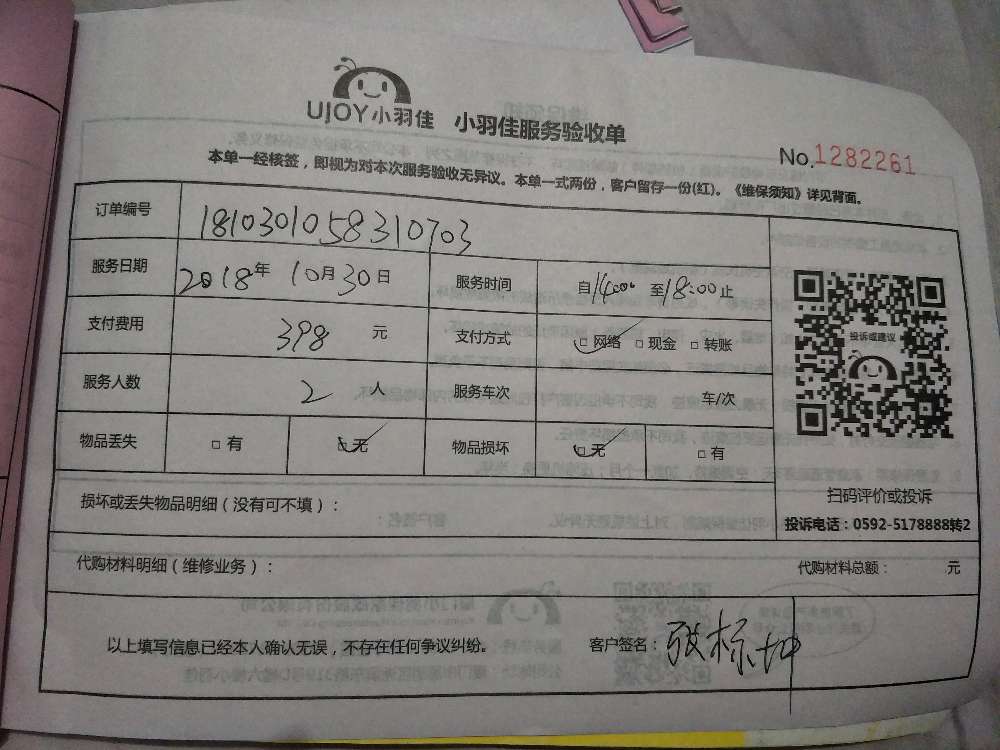 UJOY小羽佳 小羽佳服务验收单
No.1282261
本单一经核签，即视为对本次服务验收无异议。本单一式两份，客户留存一份(红)。《维保须知》详见背面。
订单编号 1810301058310703
服务日期 2018年10月30日 服务时间 自14:00 至18:00止
支付费用 398 元 支付方式 □网络 □现金 □转账
投诉或建议
服务人数 2 人 服务车次 车/次
物品丢失 □有 □无 物品损坏 □无 □有
扫码评价或投诉
损坏或丢失物品明细（没有可不填）：
投诉电话：0592-5178888转2
代购材料明细（维修业务）： 代购材料总额： 元
以上填写信息已经本人确认无误，不存在任何争议纠纷。 客户签名：张标坤